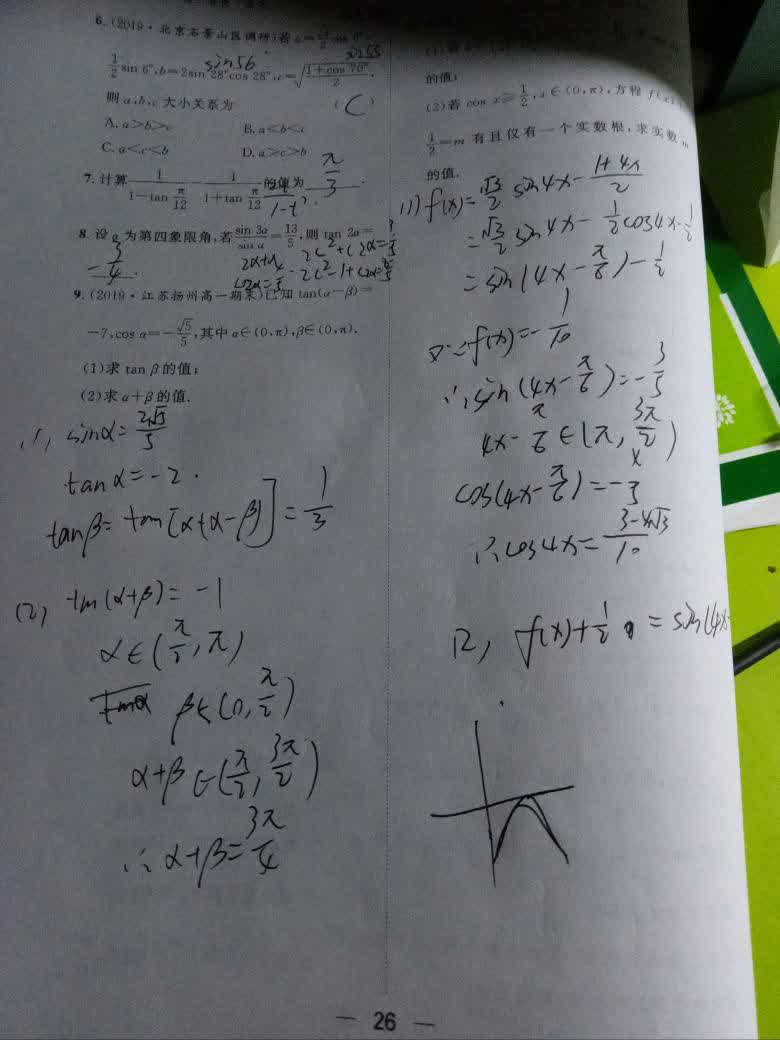 6.(2019·北京石景山区调研)若
sin56
sin55
1/2 sin 6°,b=2sin 28°cos 28°,c=√((1+cos 70°)/2),
则a,b,c大小关系为 ( C )
A.a>b>c B.a<b<c
C.a<c<b D.a>c>b
7.计算 1/(1-tan π/12) - 1/(1+tan π/12) 的值为 π/3
1-t²
8.设α为第四象限角,若 sin 3α/sin α = 13/5,则tan 2α=
= 3/4
9.(2019·江苏扬州高一期末)已知tan(α-β)=
-7,cos α=-√5/5,其中α∈(0,π),β∈(0,π).
(1)求tan β的值;
(2)求α+β的值.
(1), sinα= 2√5/5
tanα=-2.
tanβ=tan[α+α-β)]= 1/3
(2), tan(α+β)=-1
α∈(π/2,π)
β∈(0,π/2)
α+β∈(π/2,3π/2)
∴α+β=3π/4
的值;
(2)若cos x≥1/2,x∈(0,π),方程f(x)
1/2=m有且仅有一个实数根,求实数m
的值.
(1) f(x)=√3/2 sin4x-(1+4x)/2
=√3/2 sin4x-1/2 cos4x-1/2
=sin(4x-π/6)-1/2
又∵f(x)=-1/10
∴sin(4x-π/6)=-3/5
4x-π/6∈(π,3π/2)
cos(4x-π/6)=-4/5
∴cos4x=(3-4√3)/10
(2), f(x)+1/2=sin(4x-
— 26 —